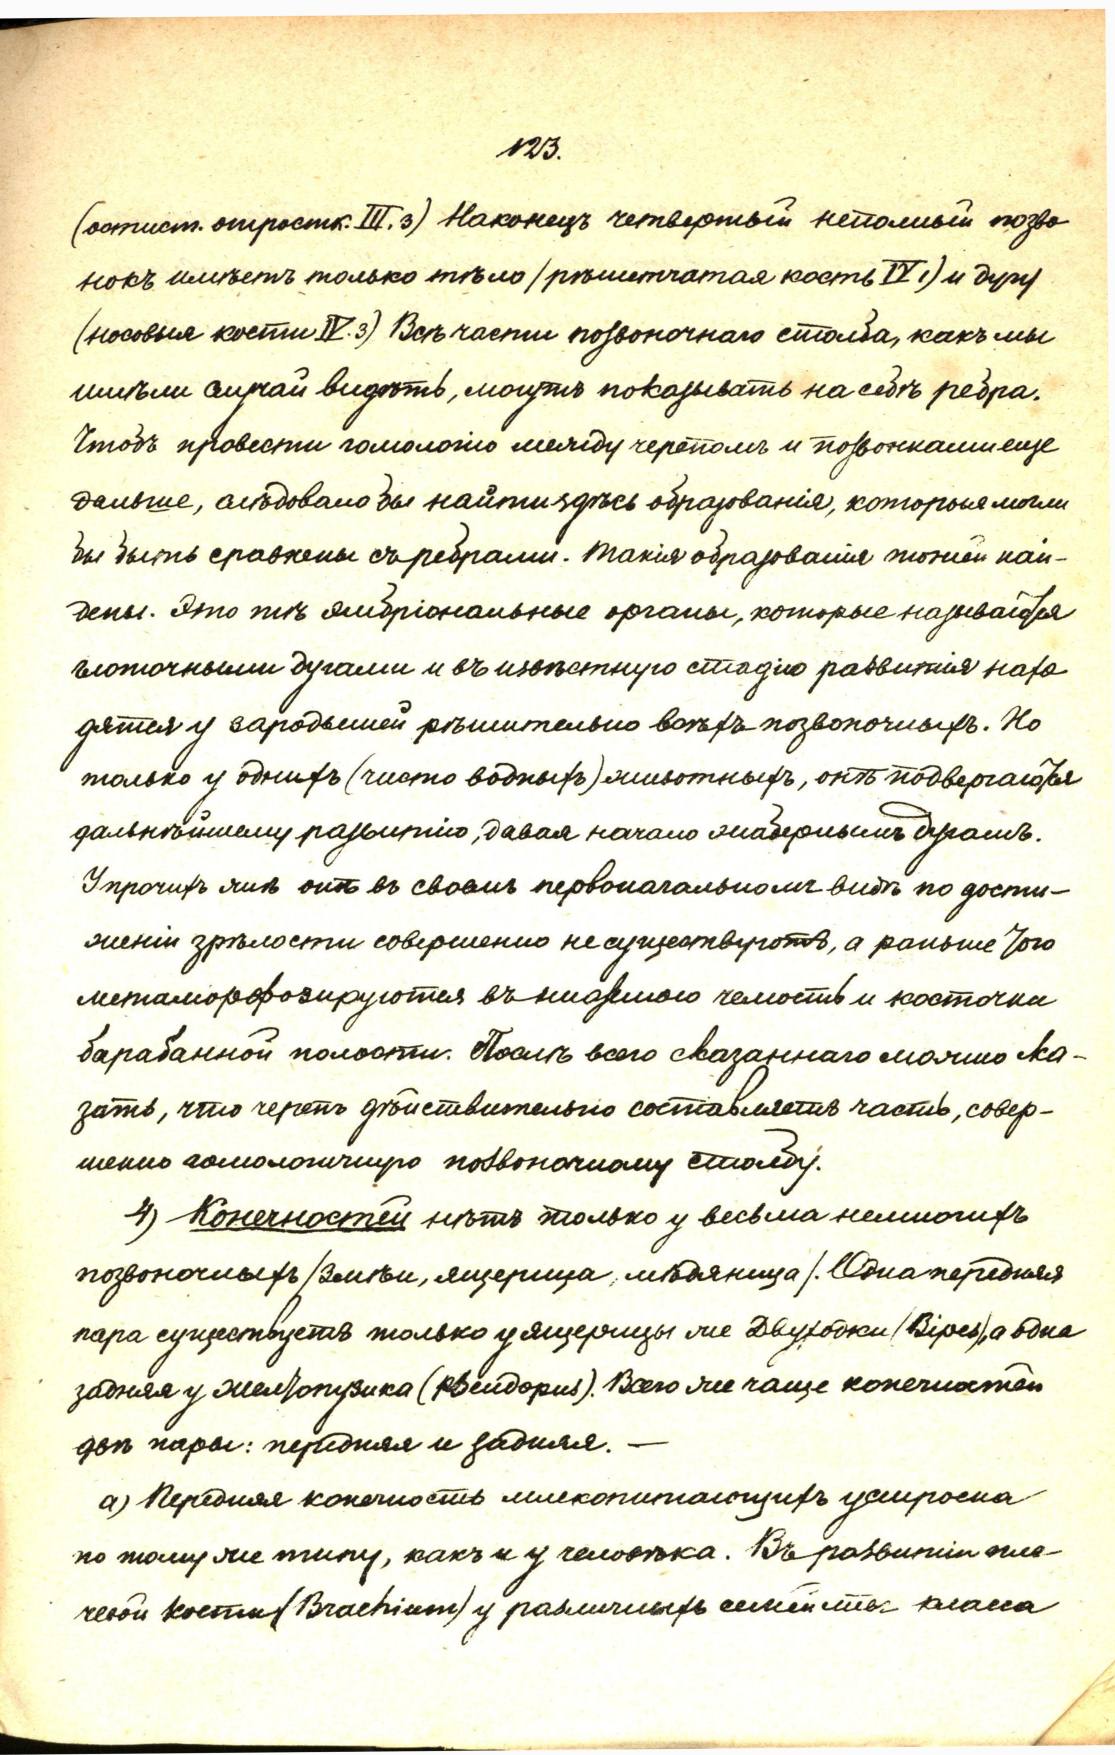 123.
(остист. отростк. III. 3) Наконецъ четвертый неполный позво
нокъ имѣетъ только тѣло (рѣшетчатая кость IV 1) и дугу
(носовыя кости IV. 3) Всѣ части позвоночнаго столба, какъ мы
имѣли случай видѣть, могутъ показывать на себѣ ребра.
Чтобъ провести гомологію между черепомъ и позвонками еще
дальше, слѣдовало бы найти здѣсь образованія, которыя могли
бы быть сравнены съ ребрами. Такія образованія и най-
дены. Это тѣ эмбріональные органы, которые называются
глоточными дугами и въ извѣстную стадію развитія нахо
дятся у зародышей рѣшительно всѣхъ позвоночныхъ. Но
только у однихъ (чисто водныхъ) животныхъ, онѣ подвергаются
дальнѣйшему развитію, давая начало жабернымъ дугамъ.
У прочихъ же онѣ въ своемъ первоначальномъ видѣ по дости-
женіи зрѣлости совершенно не существуютъ, а раньше того
метаморфозируются въ нижнюю челюсть и косточки
барабанной полости. Послѣ всего сказаннаго можно ска-
зать, что черепъ дѣйствительно составляетъ часть, совер-
шенно гомологичную позвоночному столбу.
4) Конечностей нѣтъ только у весьма немногихъ
позвоночныхъ (змѣи, ящерица, мѣдяница). Одна передняя
пара существуетъ только у ящерицы же Двуходки (Bipes), а одна
задняя у желтопузика (Pseudopus). Всего же чаще конечностей
двѣ пары: передняя и задняя. —
а) Передняя конечность млекопитающихъ устроена
по тому же типу, какъ и у человѣка. Въ развитіи пле-
чевой кости (Brachium) у различныхъ семействъ класса